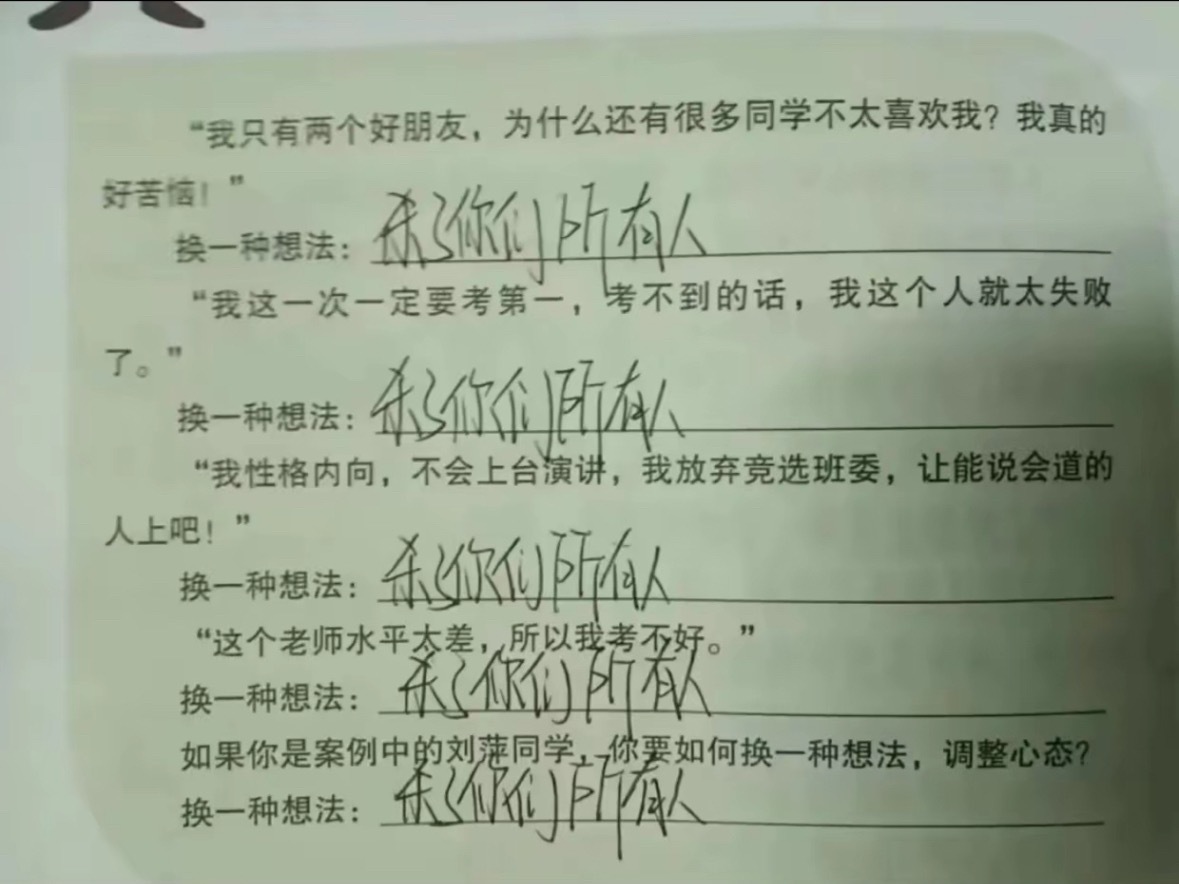 “我只有两个好朋友，为什么还有很多同学不太喜欢我？我真的
好苦恼！”
换一种想法：杀了你们所有人
“我这一次一定要考第一，考不到的话，我这个人就太失败
了。”
换一种想法：杀了你们所有人
“我性格内向，不会上台演讲，我放弃竞选班委，让能说会道的
人上吧！”
换一种想法：杀了你们所有人
“这个老师水平太差，所以我考不好。”
换一种想法：杀了你们所有人
如果你是案例中的刘萍同学，你要如何换一种想法，调整心态？
换一种想法：杀了你们所有人